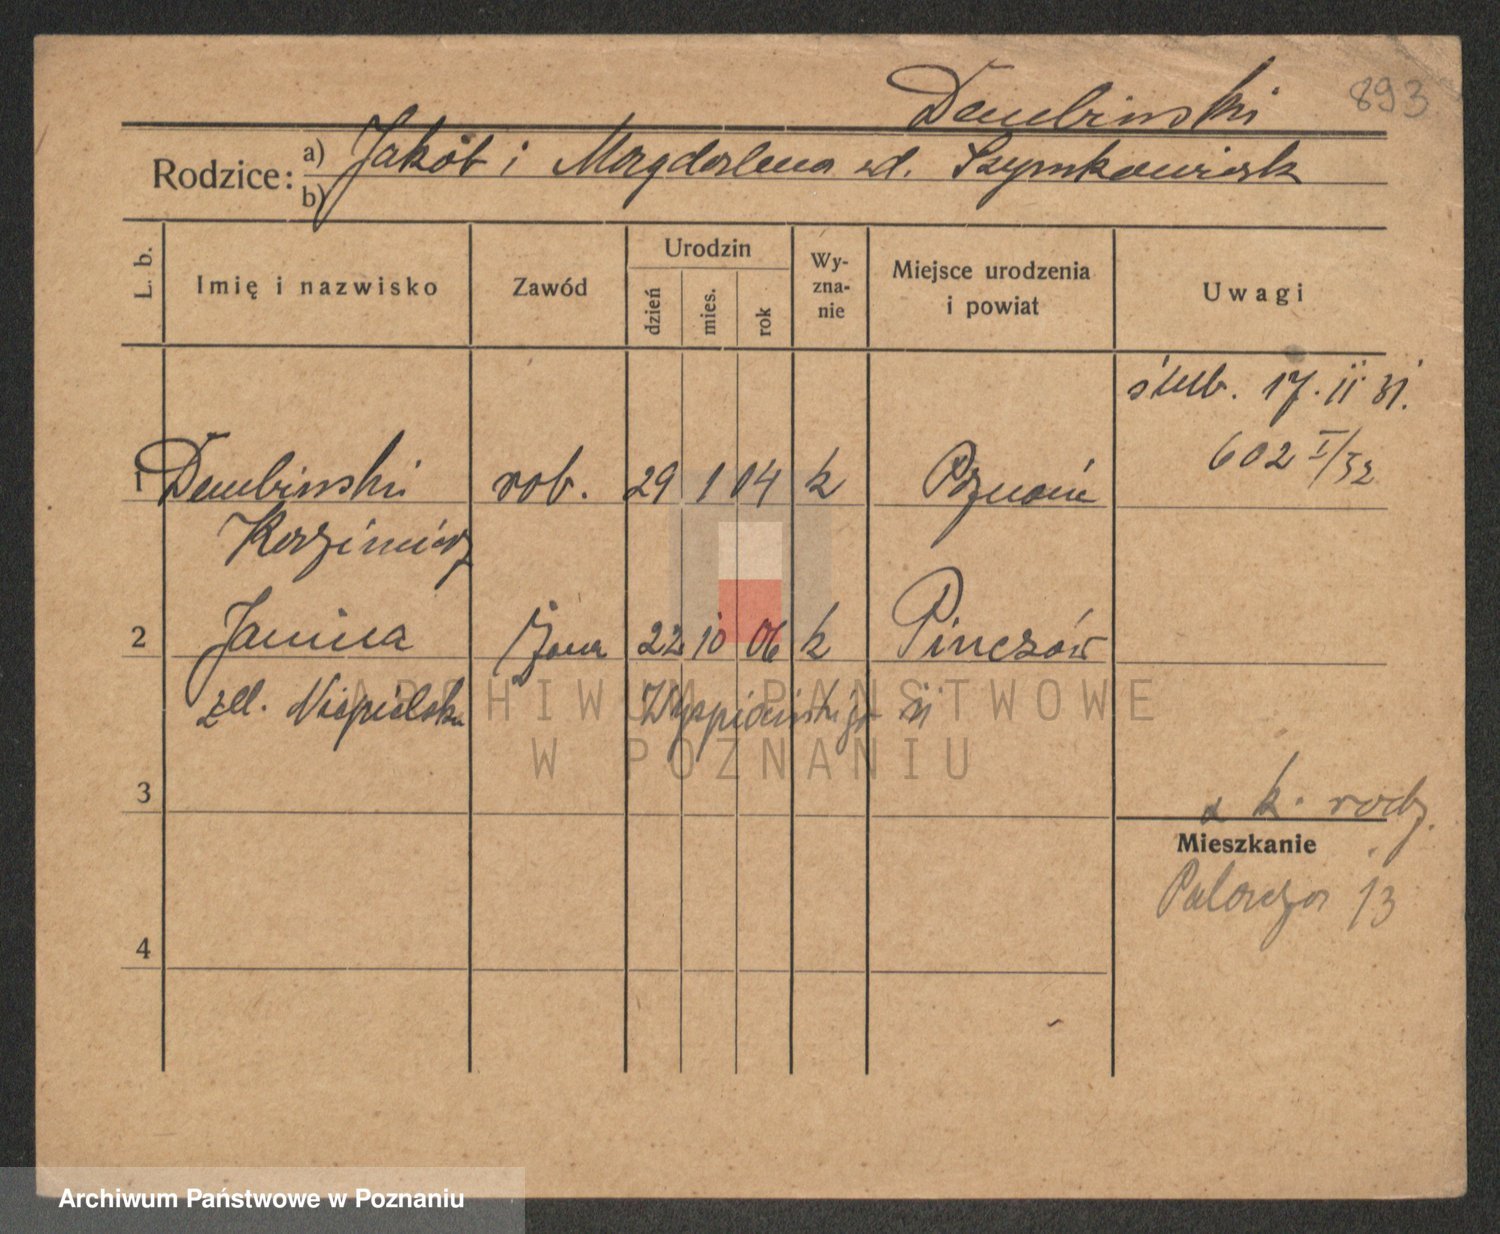 893
Dembinski
Rodzice: a) Jakób i Magdalena zd. Szymkowiak
b)
L. b.
Imię i nazwisko
Zawód
Urodzin
dzień
mies.
rok
Wy-
zna-
nie
Miejsce urodzenia
i powiat
Uwagi
ślub. 17. II 31.
602 I/32
1 Dembinski rob. 29 1 04 k Poznań
Kazimierz
2 Janina żona 22 10 06 k Pinczów
zd. Niespielska Wyspiańskiego
3
z k. rodz.
Mieszkanie
Palacza 13
4
ARCHIWUM PAŃSTWOWE
W POZNANIU
Archiwum Państwowe w Poznaniu